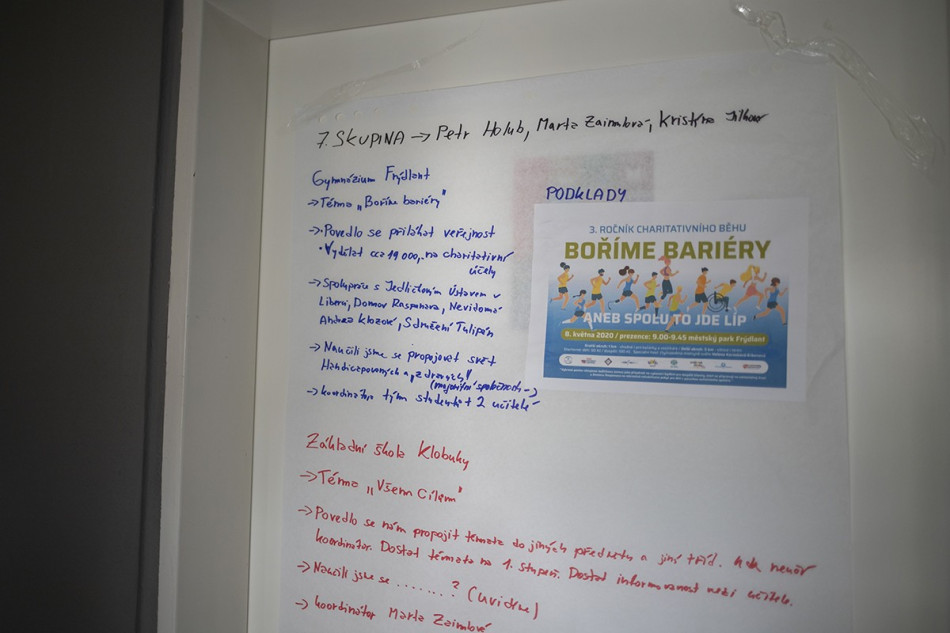 7. SKUPINA → Petr Holub, Marta Zaimlová, Kristýna
Gymnázium Frýdlant
→ Téma „Boříme bariéry"
→ Povedlo se přilákat veřejnost
• Vydělat cca 19 000,- na charitativní
účely
→ Spolupráce s Jedličkovým ústavem v
Liberci, Domov Raspenava, Nevidomá
Andrea Sdružení Tulipán
→ Naučili jsme se propojovat svět
Handicapovaných a „zdravých"
(majoritní společnosti)
→ koordinátor tým studentů + 2 učitelé
PODKLADY
3. ROČNÍK CHARITATIVNÍHO BĚHU
BOŘÍME BARIÉRY
ANEB SPOLU TO JDE LÍP
8. května 2020 / prezence: 9.00-9.45 městský park Frýdlant
Základní škola Klobuky
→ Téma „Všem Cílem"
→ Povedlo se nám propojit témata do jiných předmětů a jiní tříd.
koordinátor. Dostat témata na 1. stupeň. Dostat informovanost mezi učitele.
→ Naučili jsme se ........? (uvidíme)
→ koordinátor Marta Zaimlová